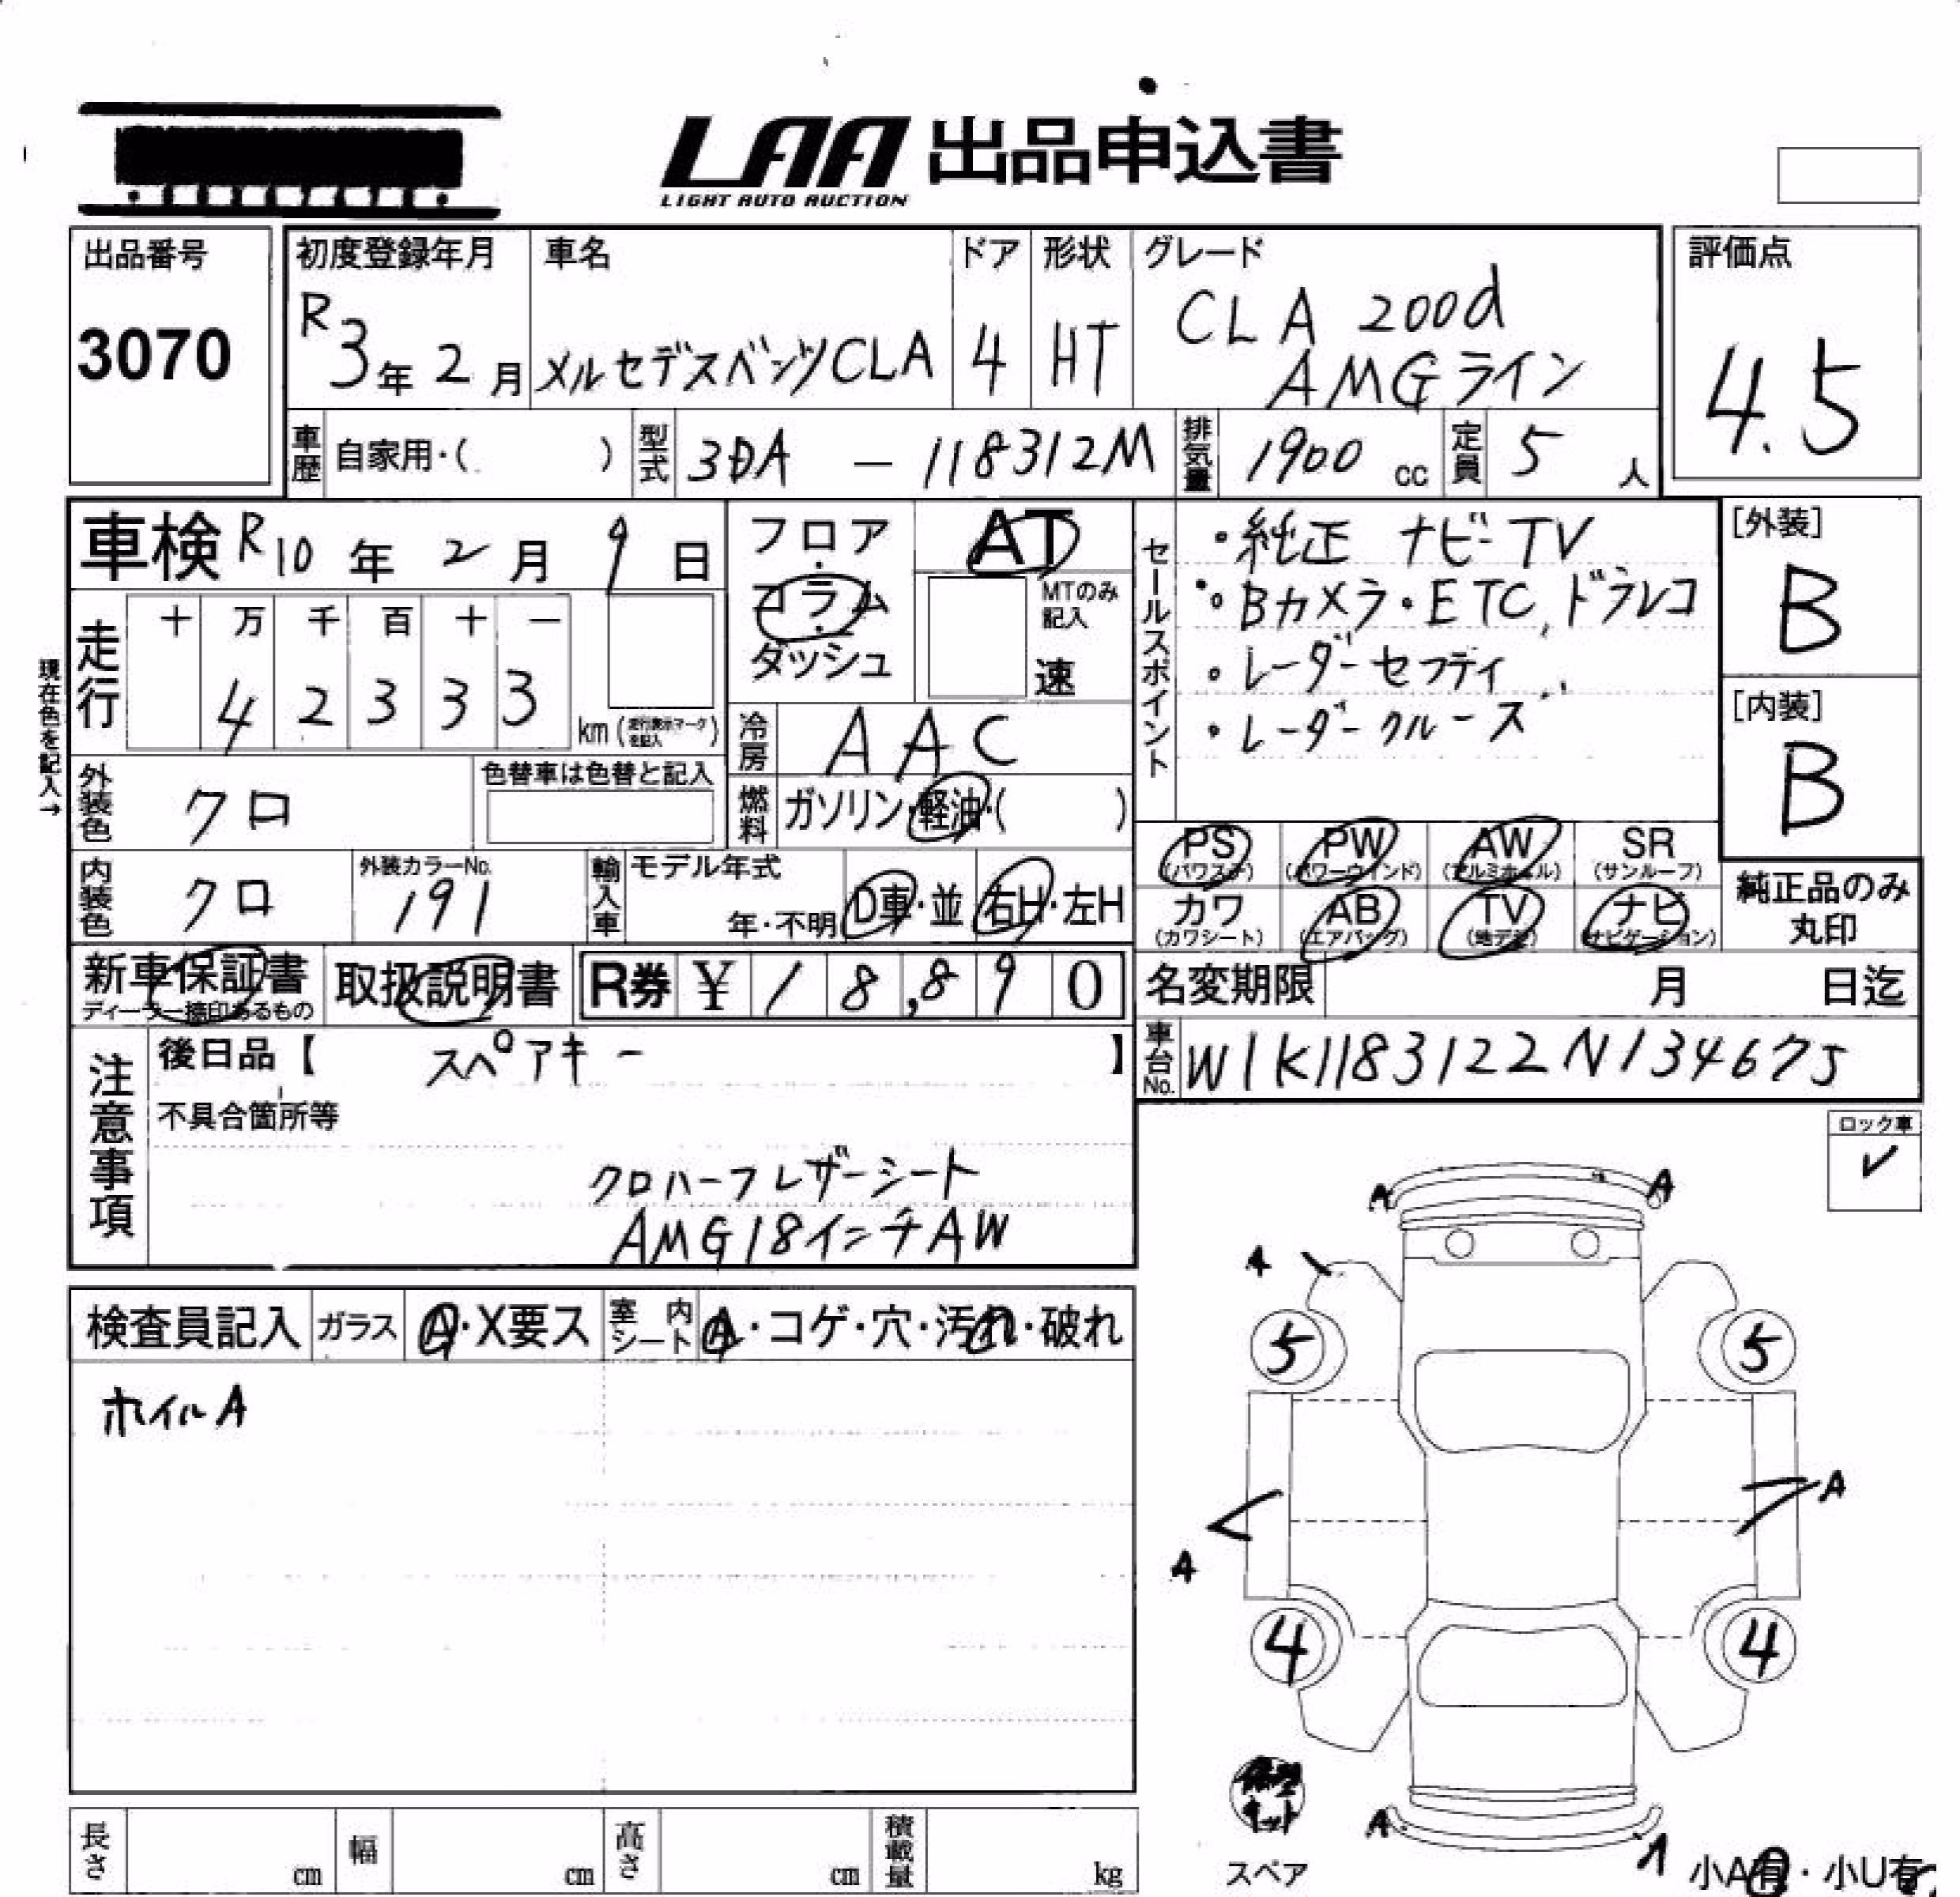 LAA 出品申込書
LIGHT AUTO AUCTION
出品番号
3070
初度登録年月
R3年2月
車名
メルセデスベンツCLA
ドア
4
形状
HT
グレード
CLA 200d
AMGライン
評価点
4.5
車歴
自家用・( )
型式
3DA - 118312M
排気量
1900 cc
定員
5 人
車検 R10年2月9日
フロア・コラム・ダッシュ
AT
MTのみ記入
速
セールスポイント
・純正 ナビ・TV
・Bカメラ・ETC,ドラレコ
・レーダーセフティ
・レーダークルーズ
[外装]
B
[内装]
B
現在色を記入→
走行
十 万 千 百 十 一
4 2 3 3 3
km (走行表示マークを記入)
冷房
AAC
外装色
クロ
色替車は色替と記入
燃料
ガソリン・軽油・( )
内装色
クロ
外装カラーNo.
191
輸入車
モデル年式
年・不明
D車・並
右H・左H
PS
(パワステ)
PW
(パワーウインド)
AW
(アルミホイル)
SR
(サンルーフ)
カワ
(カワシート)
AB
(エアバッグ)
TV
(地デジ)
ナビ
(ナビゲーション)
純正品のみ
丸印
新車保証書
ディーラー捺印あるもの
取扱説明書
R券 ¥ 1 8,8 9 0
名変期限
月 日迄
車台No.
W1K1183122N134675
注意事項
後日品【 スペアキー 】
不具合箇所等
クロハーフレザーシート
AMG18インチAW
ロック車
✓
検査員記入
ガラス
A・X要ス
室内シート
A・コゲ・穴・汚れ・破れ
ホイルA
A
A
A
5
5
A
A
4
4
キット
スペア
A
A
小A有・小U有
長さ
cm
幅
cm
高さ
cm
積載量
kg